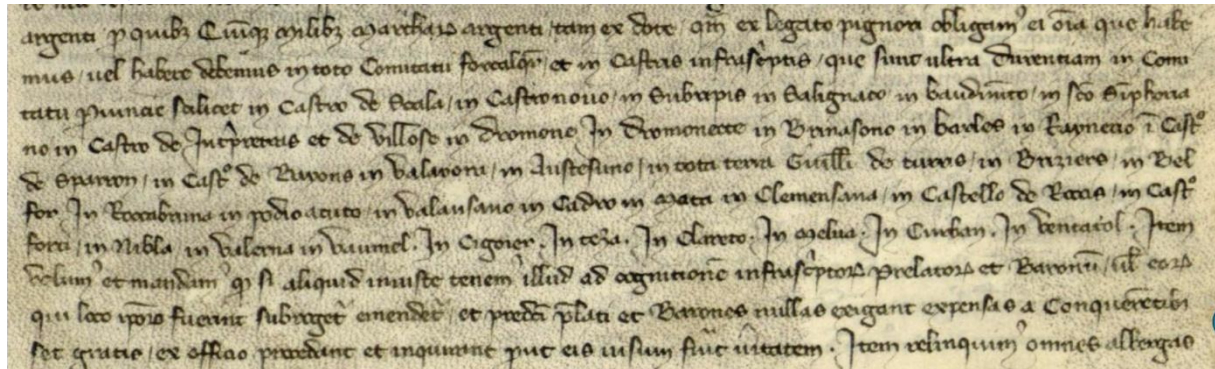 argenti p quibz Quinqz milibz marchar argenti, tam ex dote, qm ex legato pignori obligam' ei oia que habe
mus, uel habere debemus in toto Comitatu forcalqr, et in Castris infrascriptis, que sunt ultra durentiam in Comi
tatu Puincie scilicet in Castro de Scala, in Castronouo, in Subripis in Salignaco in baudimto, in sco Siphoria
no in Castro de et de Villose in dromone In dromonecte in Brinasono in barles in Raynerio i Cast°
de Sparron, in Cast° de Bayons in Valauoria, in Austefuno, in tota terra Guill'i de turris, in Briziers, in Bel
for, In Roccabruna in podio acuto, in Valansano in Cadro in Mota in Clemensana, in Castello de Rocis, in Cast°
forti, in Nibla, in Valerna in Vaumel. In Cigoier. In teza. In Clareto. In Melua. In Curban. In Ventairol. Item
uolum' et mandam' q si aliquid iniuste tenem' illud ad cognitione infrascptor prelator et Baronu, ul' eor
qui loco ipsor fuerint subroget' emendet', et predci plati et Barones nullas exigant expensas a Conquerentibz
set gratis, ex officio procedant et inquirant put eis uisum fu'it u'itatem. Item relinquim' omnes albergas